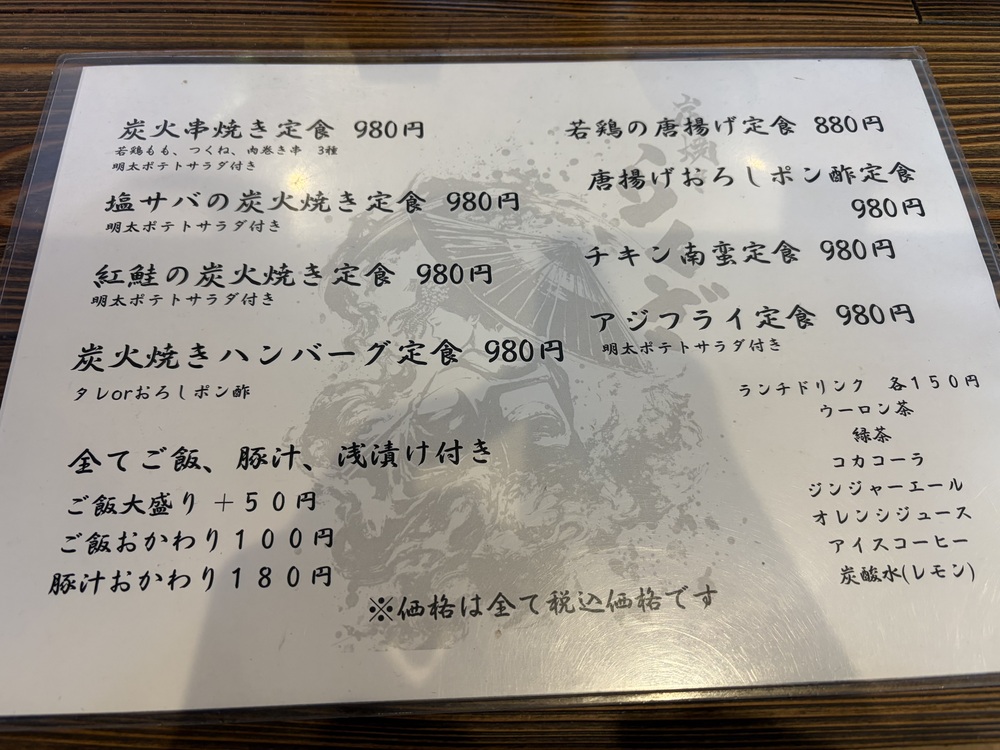 炭火串焼き定食 980円
若鶏もも、つくね、肉巻き串 3種
明太ポテトサラダ付き
塩サバの炭火焼き定食 980円
明太ポテトサラダ付き
紅鮭の炭火焼き定食 980円
明太ポテトサラダ付き
炭火焼きハンバーグ定食 980円
タレorおろしポン酢
全てご飯、豚汁、浅漬け付き
ご飯大盛り +50円
ご飯おかわり100円
豚汁おかわり180円
若鶏の唐揚げ定食 880円
唐揚げおろしポン酢定食
980円
チキン南蛮定食 980円
アジフライ定食 980円
明太ポテトサラダ付き
ランチドリンク 各150円
ウーロン茶
緑茶
コカコーラ
ジンジャーエール
オレンジジュース
アイスコーヒー
炭酸水(レモン)
※価格は全て税込価格です